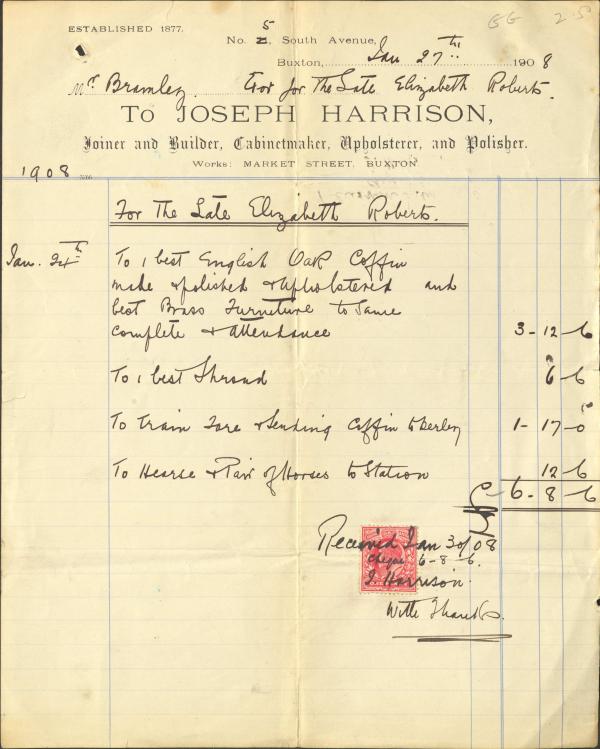 GG 2.5
ESTABLISHED 1877.
5
No. 2, South Avenue,
Buxton, Jan 27th 1908
Mr Bramley Exor for The Late Elizabeth Roberts.
To JOSEPH HARRISON,
Joiner and Builder, Cabinetmaker, Upholsterer, and Polisher.
Works: MARKET STREET, BUXTON
1908
For The Late Elizabeth Roberts.
Jan. 24th To 1 best English Oak Coffin
made & polished & Upholstered and
best Brass Furniture to Same
Complete & attendance 3-12-6
To 1 best Shroud 6-6
To Train Fare & Sending Coffin to Derley 1-17-0
To Hearse & Pair of Horses to Station 12-6
£6-8-6
Received Jan 30/08
Cheque 6-8-6.
J Harrison.
With Thanks.